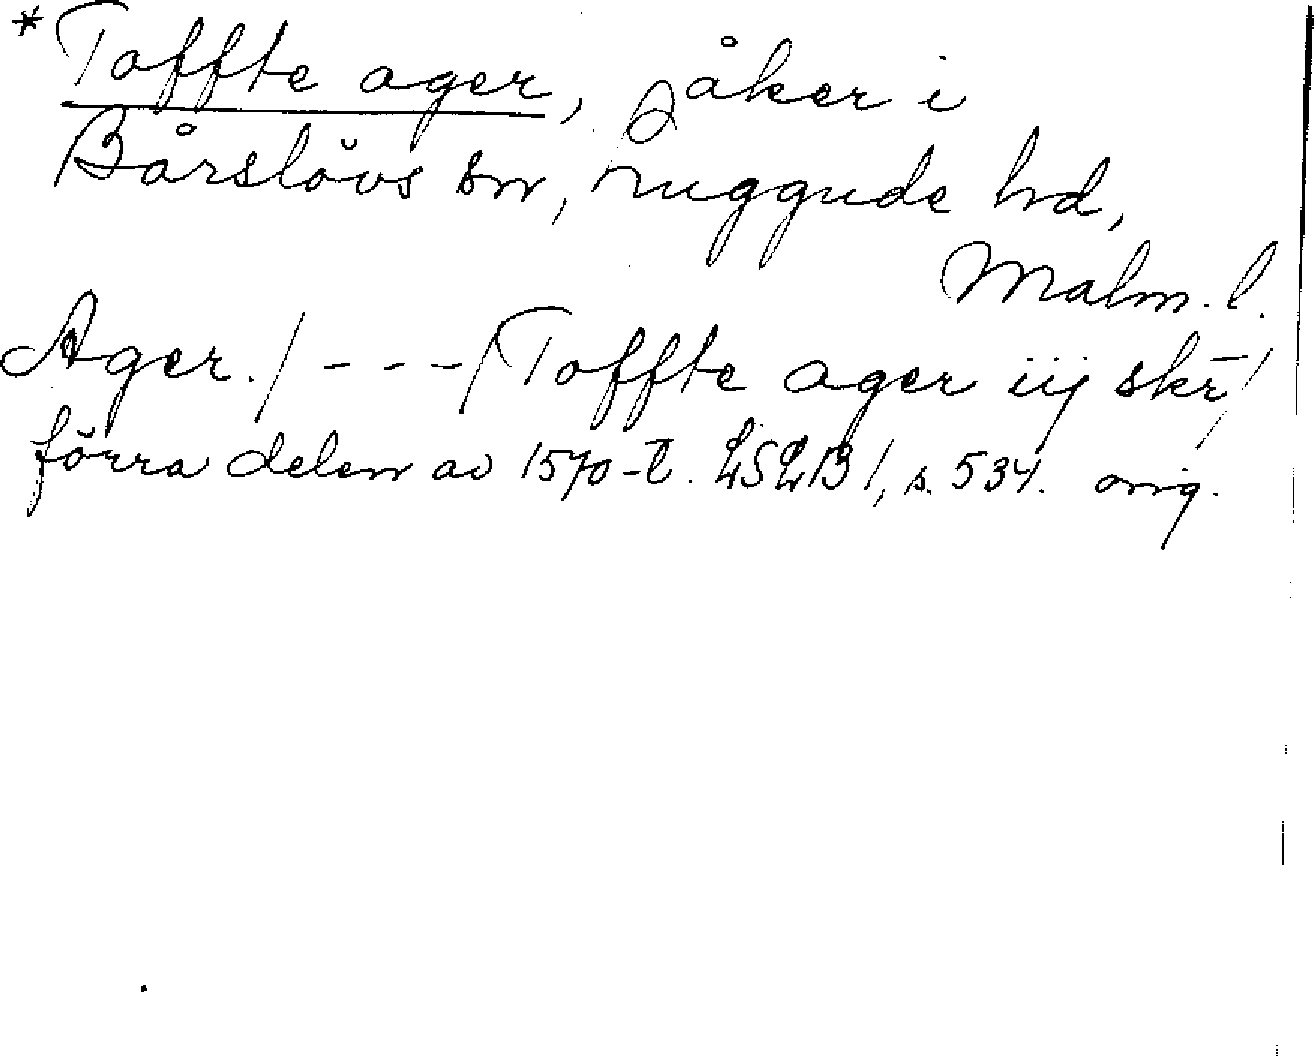 * Toffte ager, åker i
Bårslövs sn, Luggude hd,
Malm. l.
Ager. / - - - / Toffte ager iij skr̄ /
förra delen av 1570-t. LSLB 1, s. 534. orig.